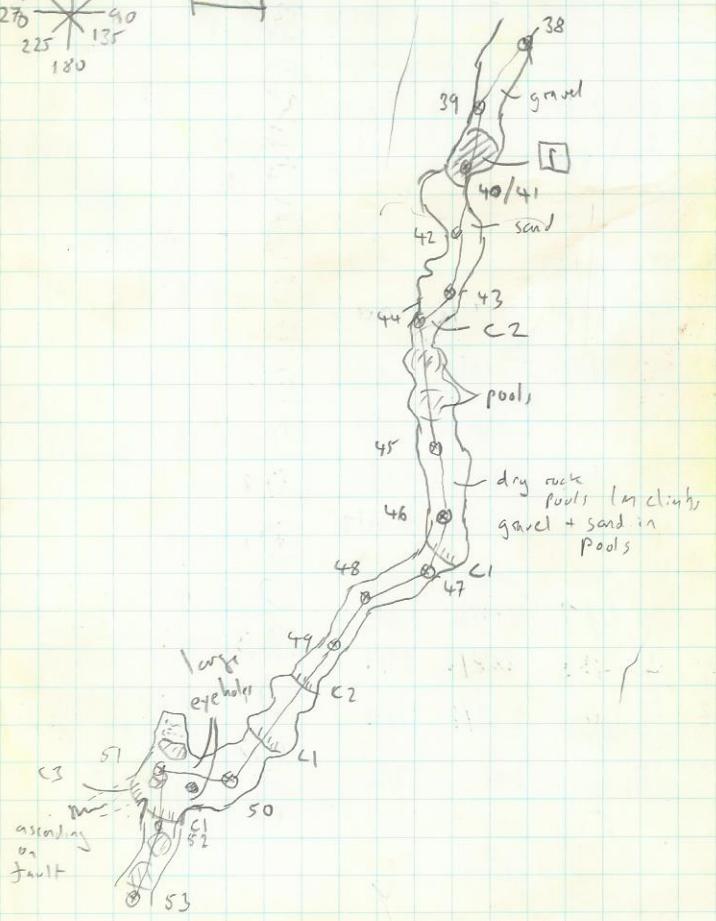 270 90
225 135
180
38
39
gravel
P
40/41
42
sand
43
44
C2
pools
45
dry rock
pools 1m climbs
gravel + sand in
pools
46
C1
47
48
49
large
eyeholes
C2
C1
51
C3
50
C1
52
ascending
on
fault
53